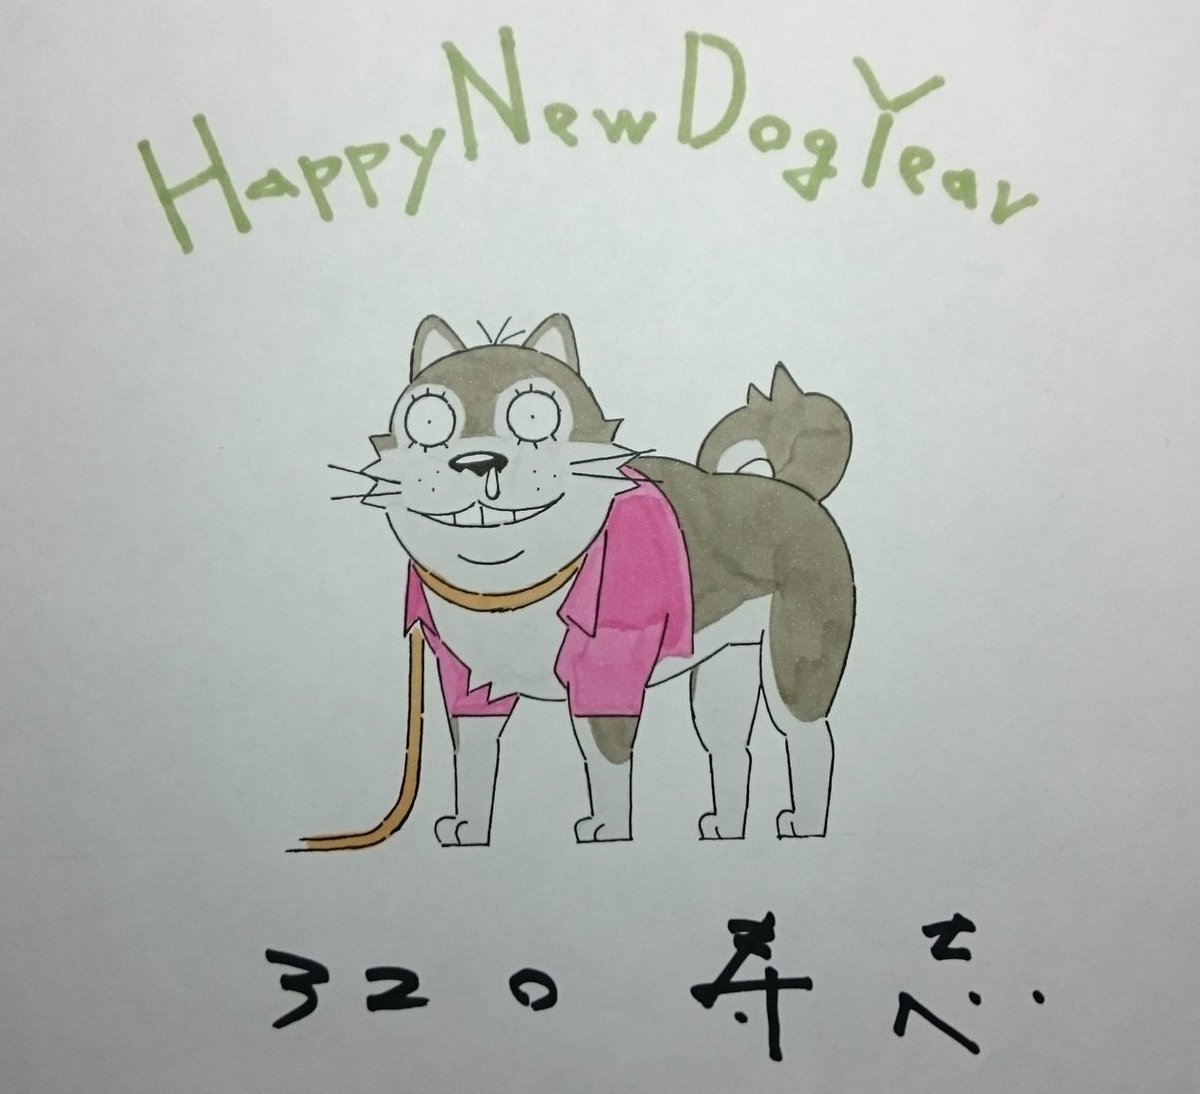 Happy New Dog Year
320 寿志